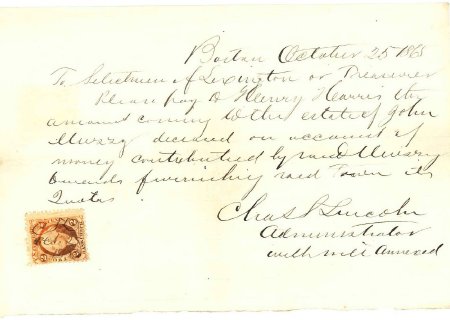 Boston October 25 1865
To Selectmen of Lexington or Treasurer
Please pay to Henry Harris the
amount coming to the estate of John
Muzzy deceased on account of
money contributed by said Muzzy
towards furnishing said Town its
Quotas
Chas Lincoln
Administrator
with will annexed